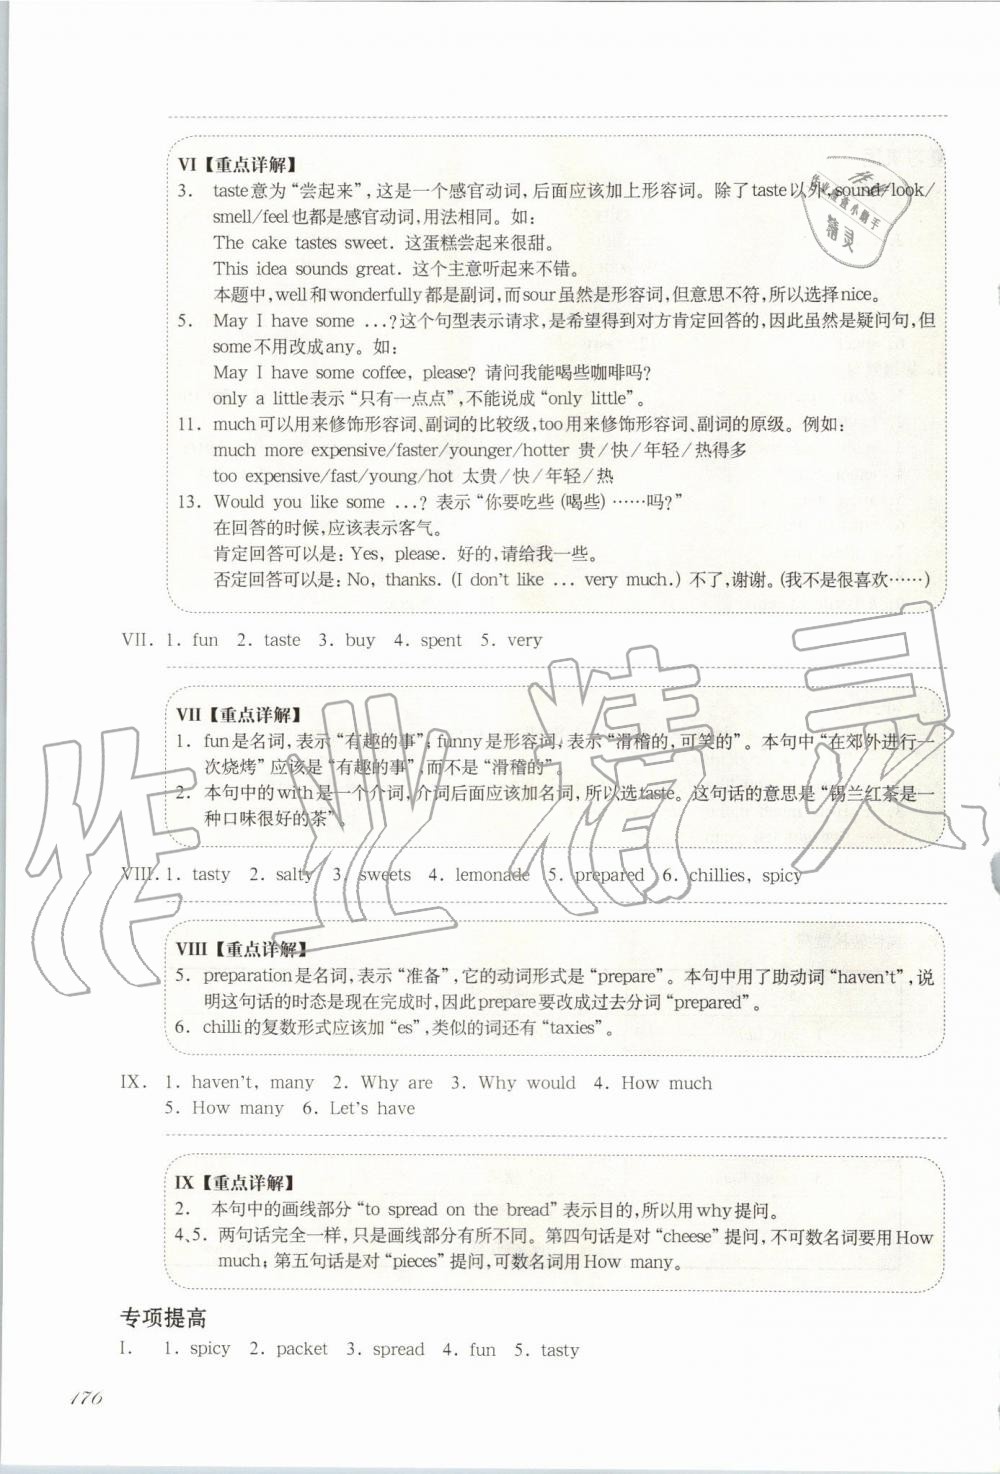 VI【重点详解】
3. taste意为“尝起来”，这是一个感官动词，后面应该加上形容词。除了taste以外，sound/look/
smell/feel也都是感官动词，用法相同。如：
The cake tastes sweet. 这蛋糕尝起来很甜。
This idea sounds great. 这个主意听起来不错。
本题中，well和wonderfully都是副词，而sour虽然是形容词，但意思不符，所以选择nice。
5. May I have some ...?这个句型表示请求，是希望得到对方肯定回答的，因此虽然是疑问句，但
some不用改成any。如：
May I have some coffee, please? 请问我能喝些咖啡吗？
only a little表示“只有一点点”，不能说成“only little”。
11. much可以用来修饰形容词、副词的比较级，too用来修饰形容词、副词的原级。例如：
much more expensive/faster/younger/hotter 贵/快/年轻/热得多
too expensive/fast/young/hot 太贵/快/年轻/热
13. Would you like some ...? 表示“你要吃些(喝些)……吗？”
在回答的时候，应该表示客气。
肯定回答可以是：Yes, please. 好的，请给我一些。
否定回答可以是：No, thanks. (I don't like ... very much.) 不了，谢谢。(我不是很喜欢……)
VII. 1. fun 2. taste 3. buy 4. spent 5. very
VII【重点详解】
1. fun是名词，表示“有趣的事”；funny是形容词，表示“滑稽的，可笑的”。本句中“在郊外进行一
次烧烤”应该是“有趣的事”，而不是“滑稽的”。
2. 本句中的with是一个介词，介词后面应该加名词，所以选taste。这句话的意思是“锡兰红茶是一
种口味很好的茶”。
VIII. 1. tasty 2. salty 3. sweets 4. lemonade 5. prepared 6. chillies, spicy
VIII【重点详解】
5. preparation是名词，表示“准备”，它的动词形式是“prepare”。本句中用了助动词“haven't”，说
明这句话的时态是现在完成时，因此prepare要改成过去分词“prepared”。
6. chilli的复数形式应该加“es”，类似的词还有“taxies”。
IX. 1. haven't, many 2. Why are 3. Why would 4. How much
5. How many 6. Let's have
IX【重点详解】
2. 本句中的画线部分“to spread on the bread”表示目的，所以用why提问。
4、5. 两句话完全一样，只是画线部分有所不同。第四句话是对“cheese”提问，不可数名词要用How
much；第五句话是对“pieces”提问，可数名词用How many。
专项提高
I. 1. spicy 2. packet 3. spread 4. fun 5. tasty
176
作业精灵